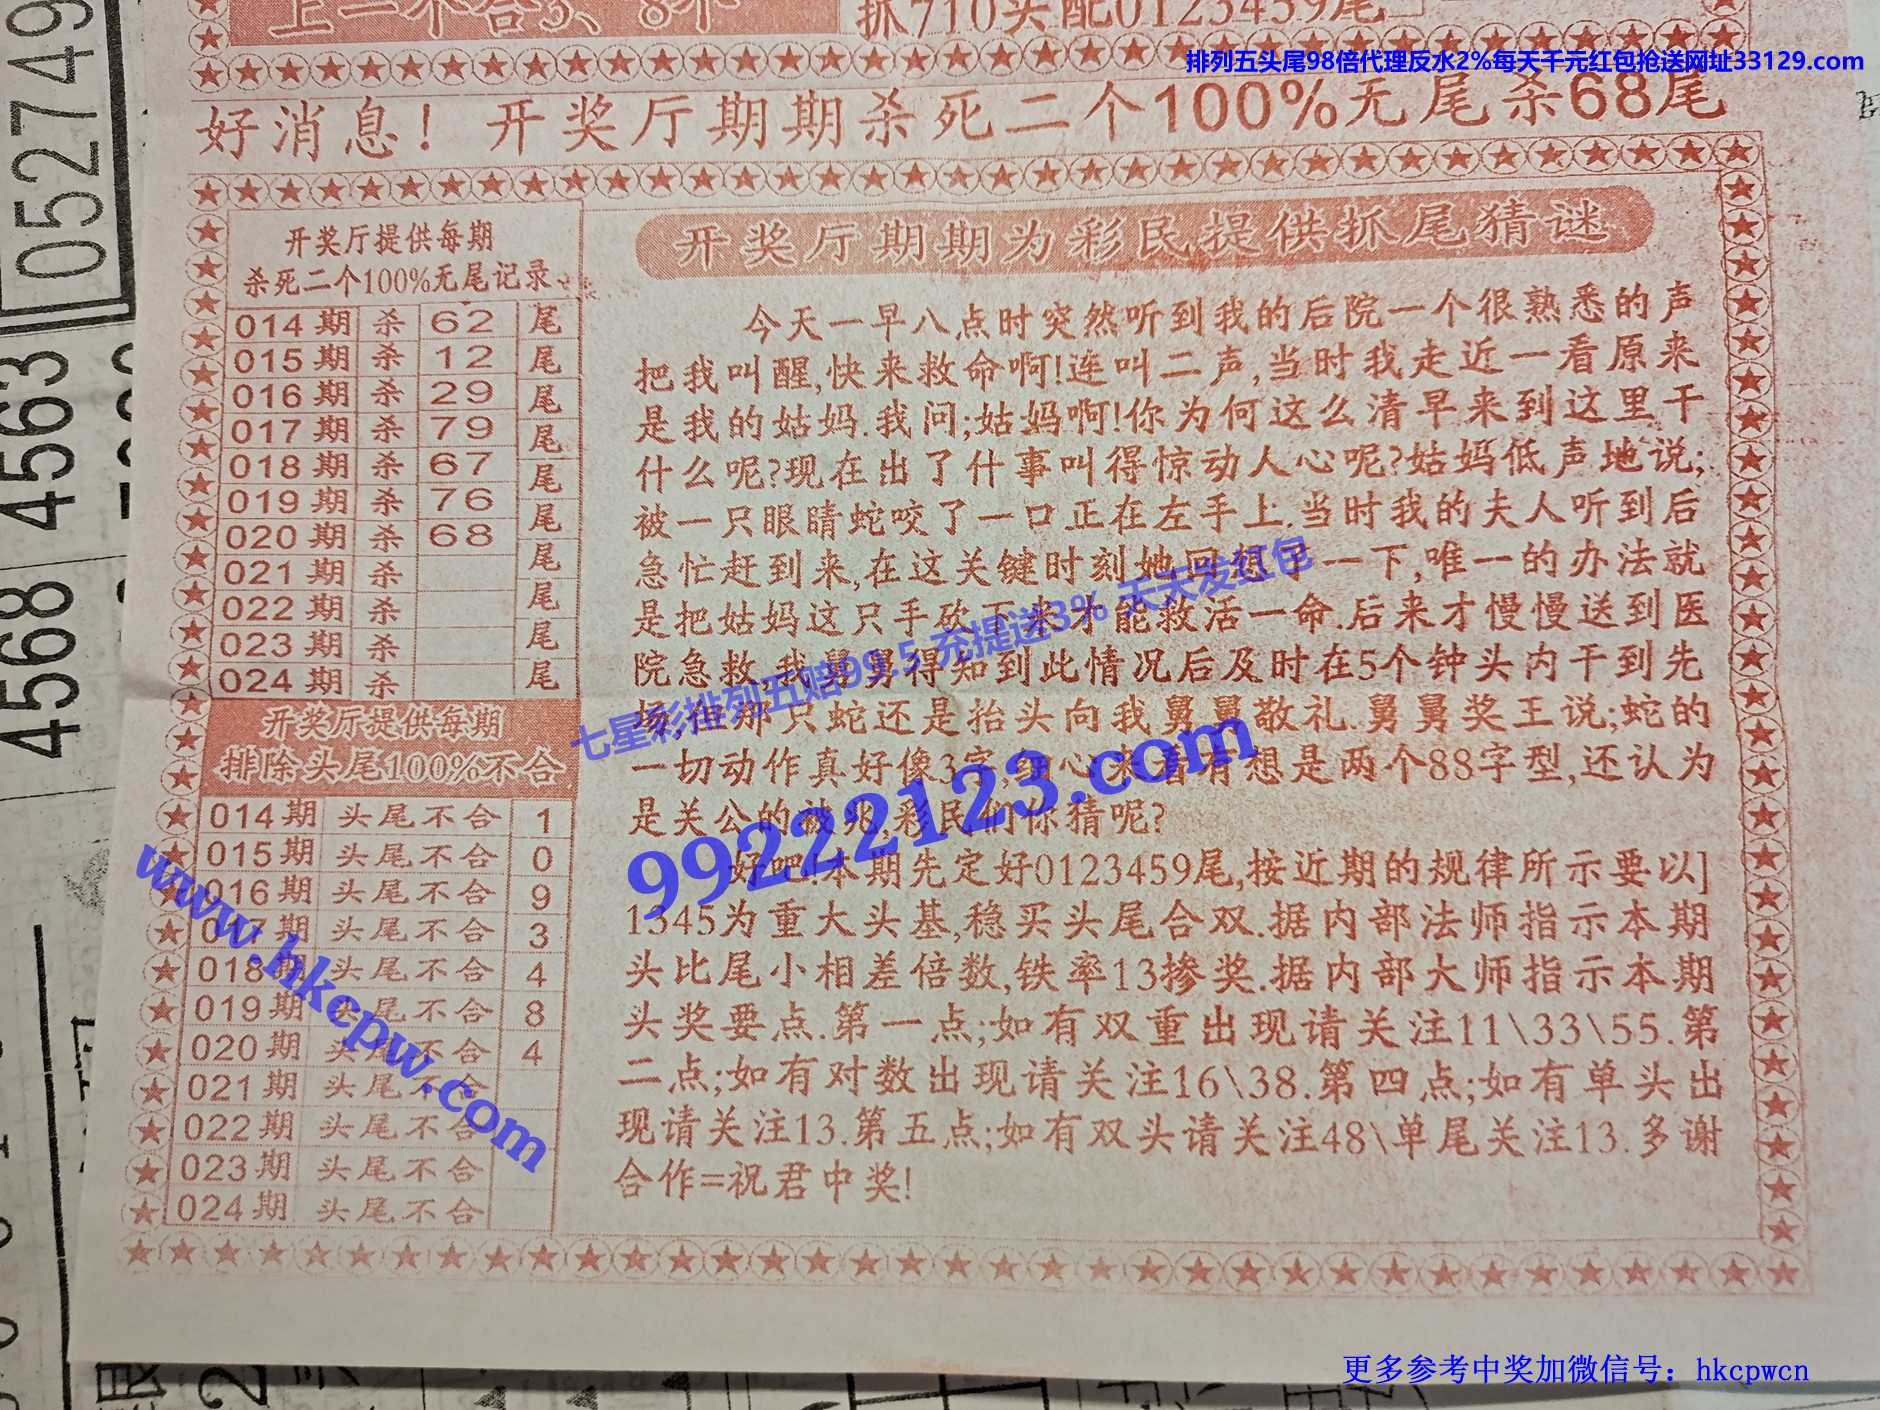 上一不合3、8不
抓710头配0123459尾
排列五头尾98倍代理反水2%每天千元红包抢送网址33129.com
好消息！开奖厅期期杀死二个100%无尾杀68尾
开奖厅提供每期
杀死二个100%无尾记录
014期 杀 62 尾
015期 杀 12 尾
016期 杀 29 尾
017期 杀 79 尾
018期 杀 67 尾
019期 杀 76 尾
020期 杀 68 尾
021期 杀 尾
022期 杀 尾
023期 杀 尾
024期 杀 尾
开奖厅提供每期
排除头尾100%不合
014期 头尾不合 1
015期 头尾不合 0
016期 头尾不合 9
017期 头尾不合 3
018期 头尾不合 4
019期 头尾不合 8
020期 头尾不合 4
021期 头尾不合
022期 头尾不合
023期 头尾不合
024期 头尾不合
开奖厅期期为彩民提供抓尾猜谜
今天一早八点时突然听到我的后院一个很熟悉的声
把我叫醒,快来救命啊!连叫二声,当时我走近一看原来
是我的姑妈.我问;姑妈啊!你为何这么清早来到这里干
什么呢?现在出了什事叫得惊动人心呢?姑妈低声地说;
被一只眼睛蛇咬了一口正在左手上.当时我的夫人听到后
急忙赶到来,在这关键时刻她回想了一下,唯一的办法就
是把姑妈这只手砍下来才能救活一命.后来才慢慢送到医
院急救,我舅舅得知到此情况后及时在5个钟头内干到先
场,但那只蛇还是抬头向我舅舅敬礼.舅舅奖王说;蛇的
一切动作真好像3字,细心来看有想是两个88字型,还认为
是关公的被兆,彩民们你猜呢?
好吧!本期先定好0123459尾,按近期的规律所示要以]
1345为重大头基,稳买头尾合双.据内部法师指示本期
头比尾小相差倍数,铁率13掺奖.据内部大师指示本期
头奖要点.第一点;如有双重出现请关注11\33\55.第
二点;如有对数出现请关注16\38.第四点;如有单头出
现请关注13.第五点;如有双头请关注48\单尾关注13.多谢
合作=祝君中奖!
七星彩排列五赔99.5 充提送3% 天天发红包
99222123.com
www.hkcpw.com
052749
4568 4563
更多参考中奖加微信号：hkcpwcn